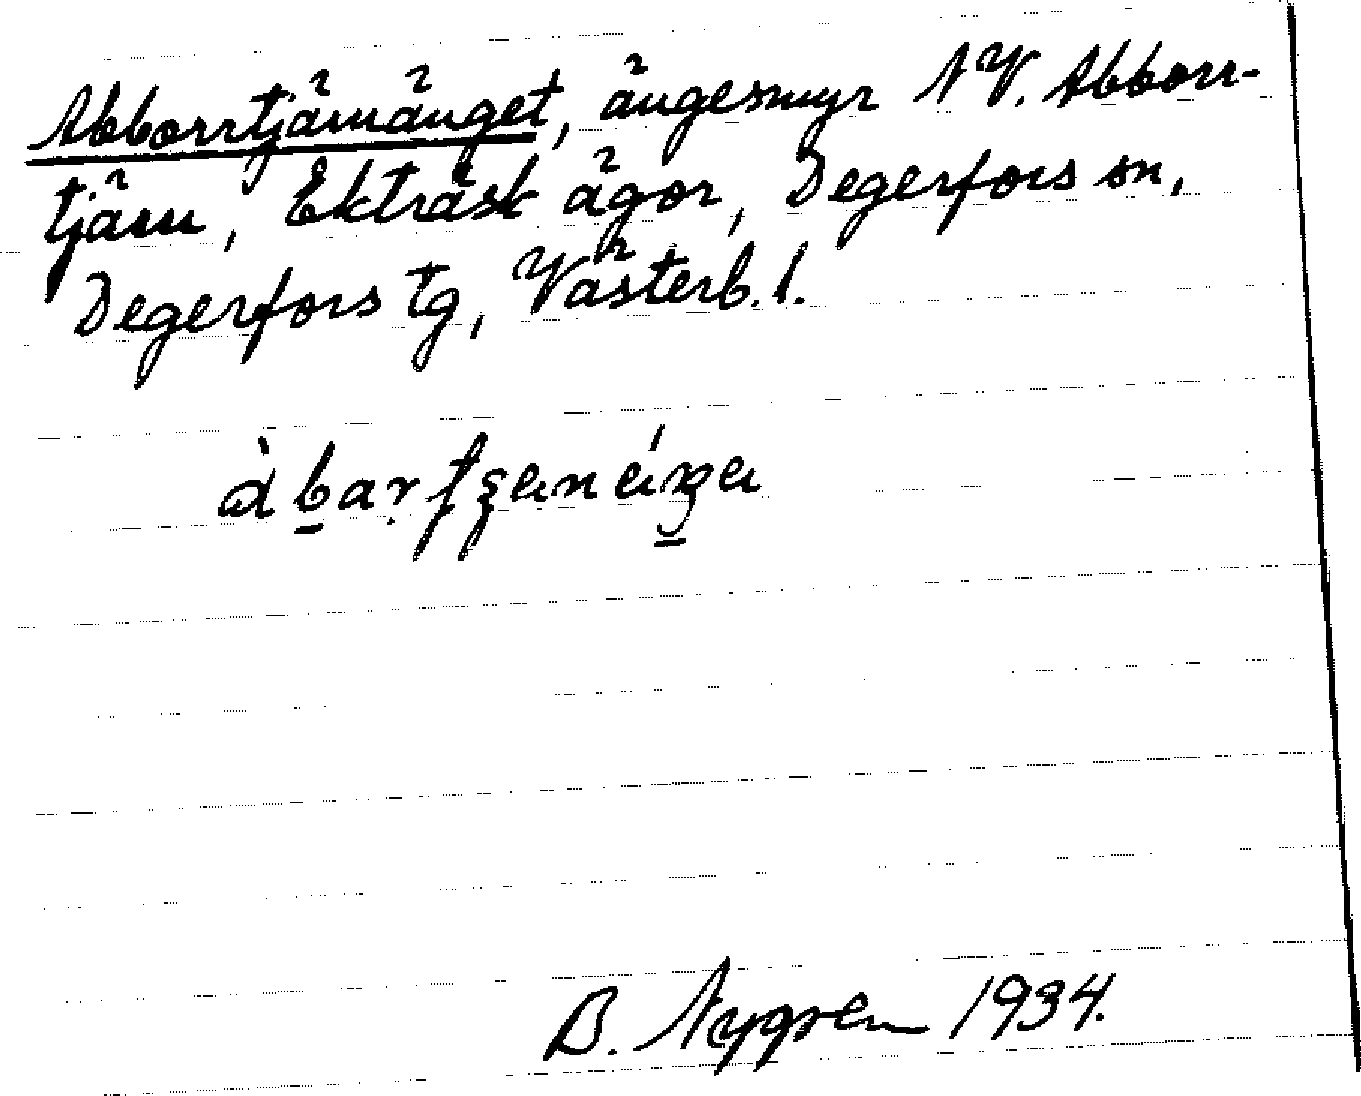 Abborrtjärnänget, ängesmyr NV. Abborr-
tjärn, Ekträsk ägor, Degerfors sn,
Degerfors tg, Västerb. l.
B. Nygren 1934.